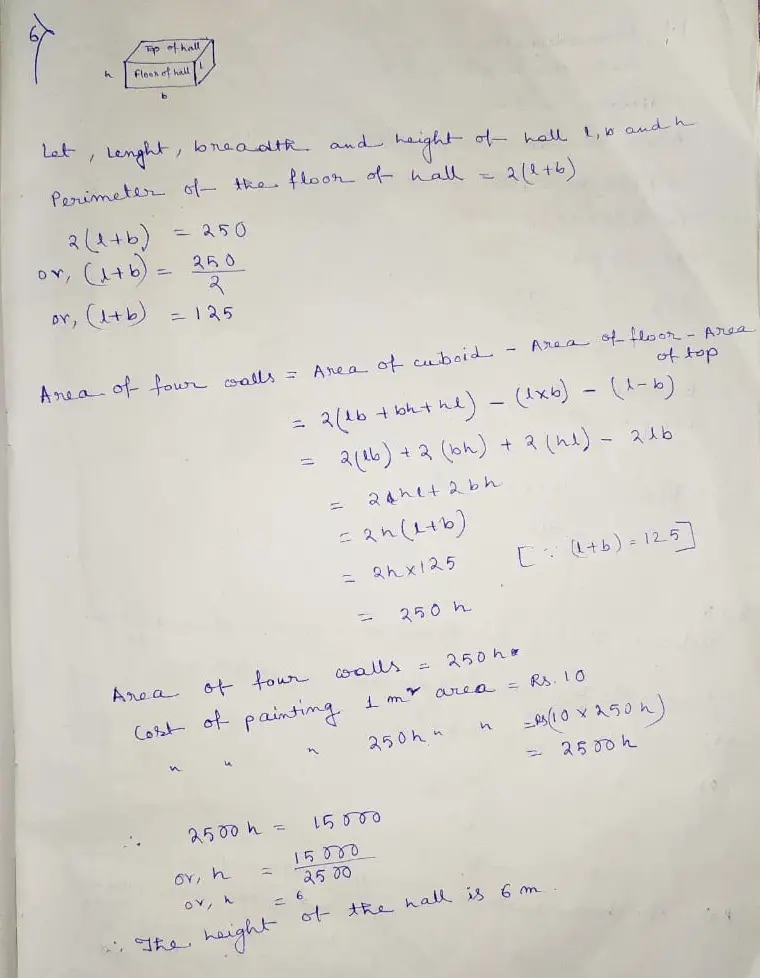 6)
Top of hall
Floor of hall
h
l
b
Let, Lenght, breadth and height of hall l, b and h
Perimeter of the floor of hall = 2(l+b)
2(l+b) = 250
or, (l+b) = 250/2
or, (l+b) = 125
Area of four walls = Area of cuboid - Area of floor - Area of top
= 2(lb + bh + hl) - (l×b) - (l-b)
= 2(lb) + 2(bh) + 2(hl) - 2lb
= 2hl + 2bh
= 2h(l+b)
= 2h×125 [∵ (l+b) = 125]
= 250 h
Area of four walls = 250h
Cost of painting 1 m² area = Rs. 10
" " " 250h " " = Rs(10 × 250h)
= 2500h
∴ 2500h = 15000
or, h = 15000/2500
or, h = 6
∴ The height of the hall is 6 m.